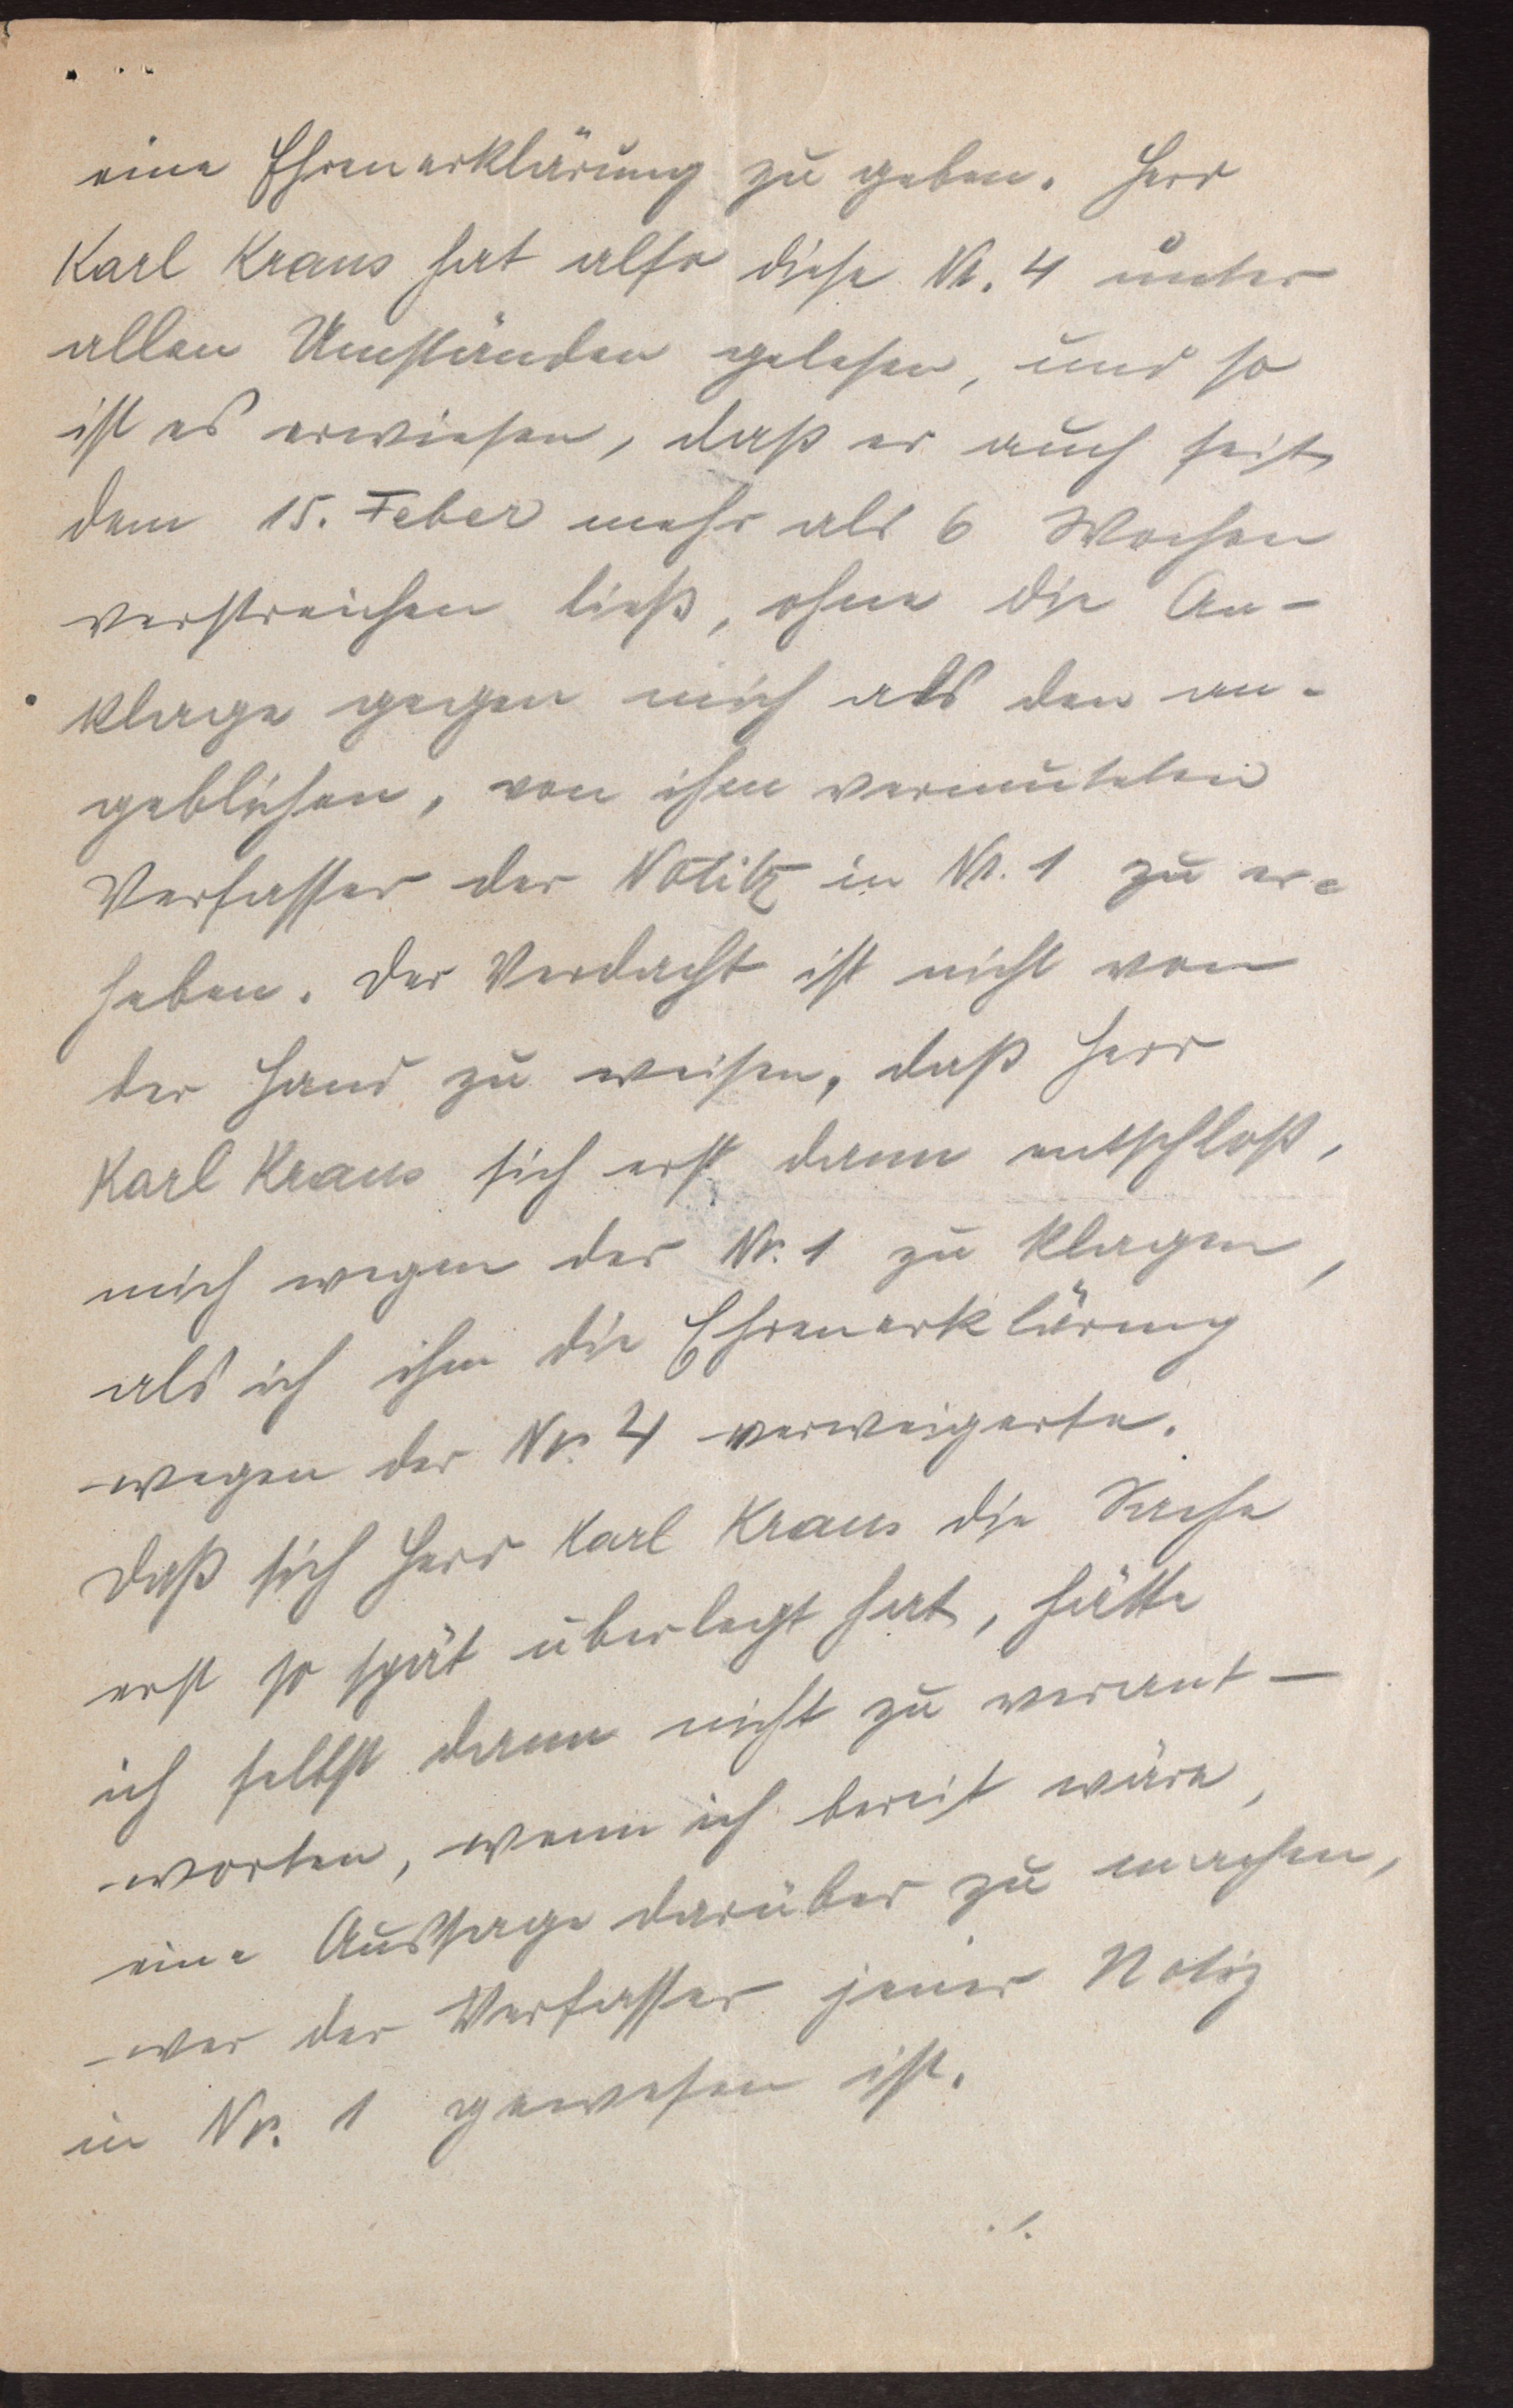 eine Ehrenerklärung zu geben. Herr
Karl Kraus hat also diese Nr. 4 unter
allen Umständen gelesen, und so
ist es erwiesen, daß er auch seit
dem 15. Feber mehr als 6 Wochen
verstreichen ließ, ohne die An-
klage gegen mich als den an-
geblichen, von ihm vermuteten
Verfasser der Notitz in Nr. 1 zu er-
heben. Der Verdacht ist nicht von
der Hand zu weisen, daß Herr
Karl Kraus sich erst dann entschloß,
mich wegen der Nr. 1 zu klagen,
als ich ihm die Ehrenerklärung
wegen der Nr. 4 verweigerte.
Daß sich Herr Karl Kraus die Sache
erst so spät überlegt hat, hätte
ich selbst dann nicht zu verant-
worten, wenn ich bereit wäre,
eine Aussage darüber zu machen,
wer der Verfasser jener Notiz
in Nr. 1 gewesen ist.
./.